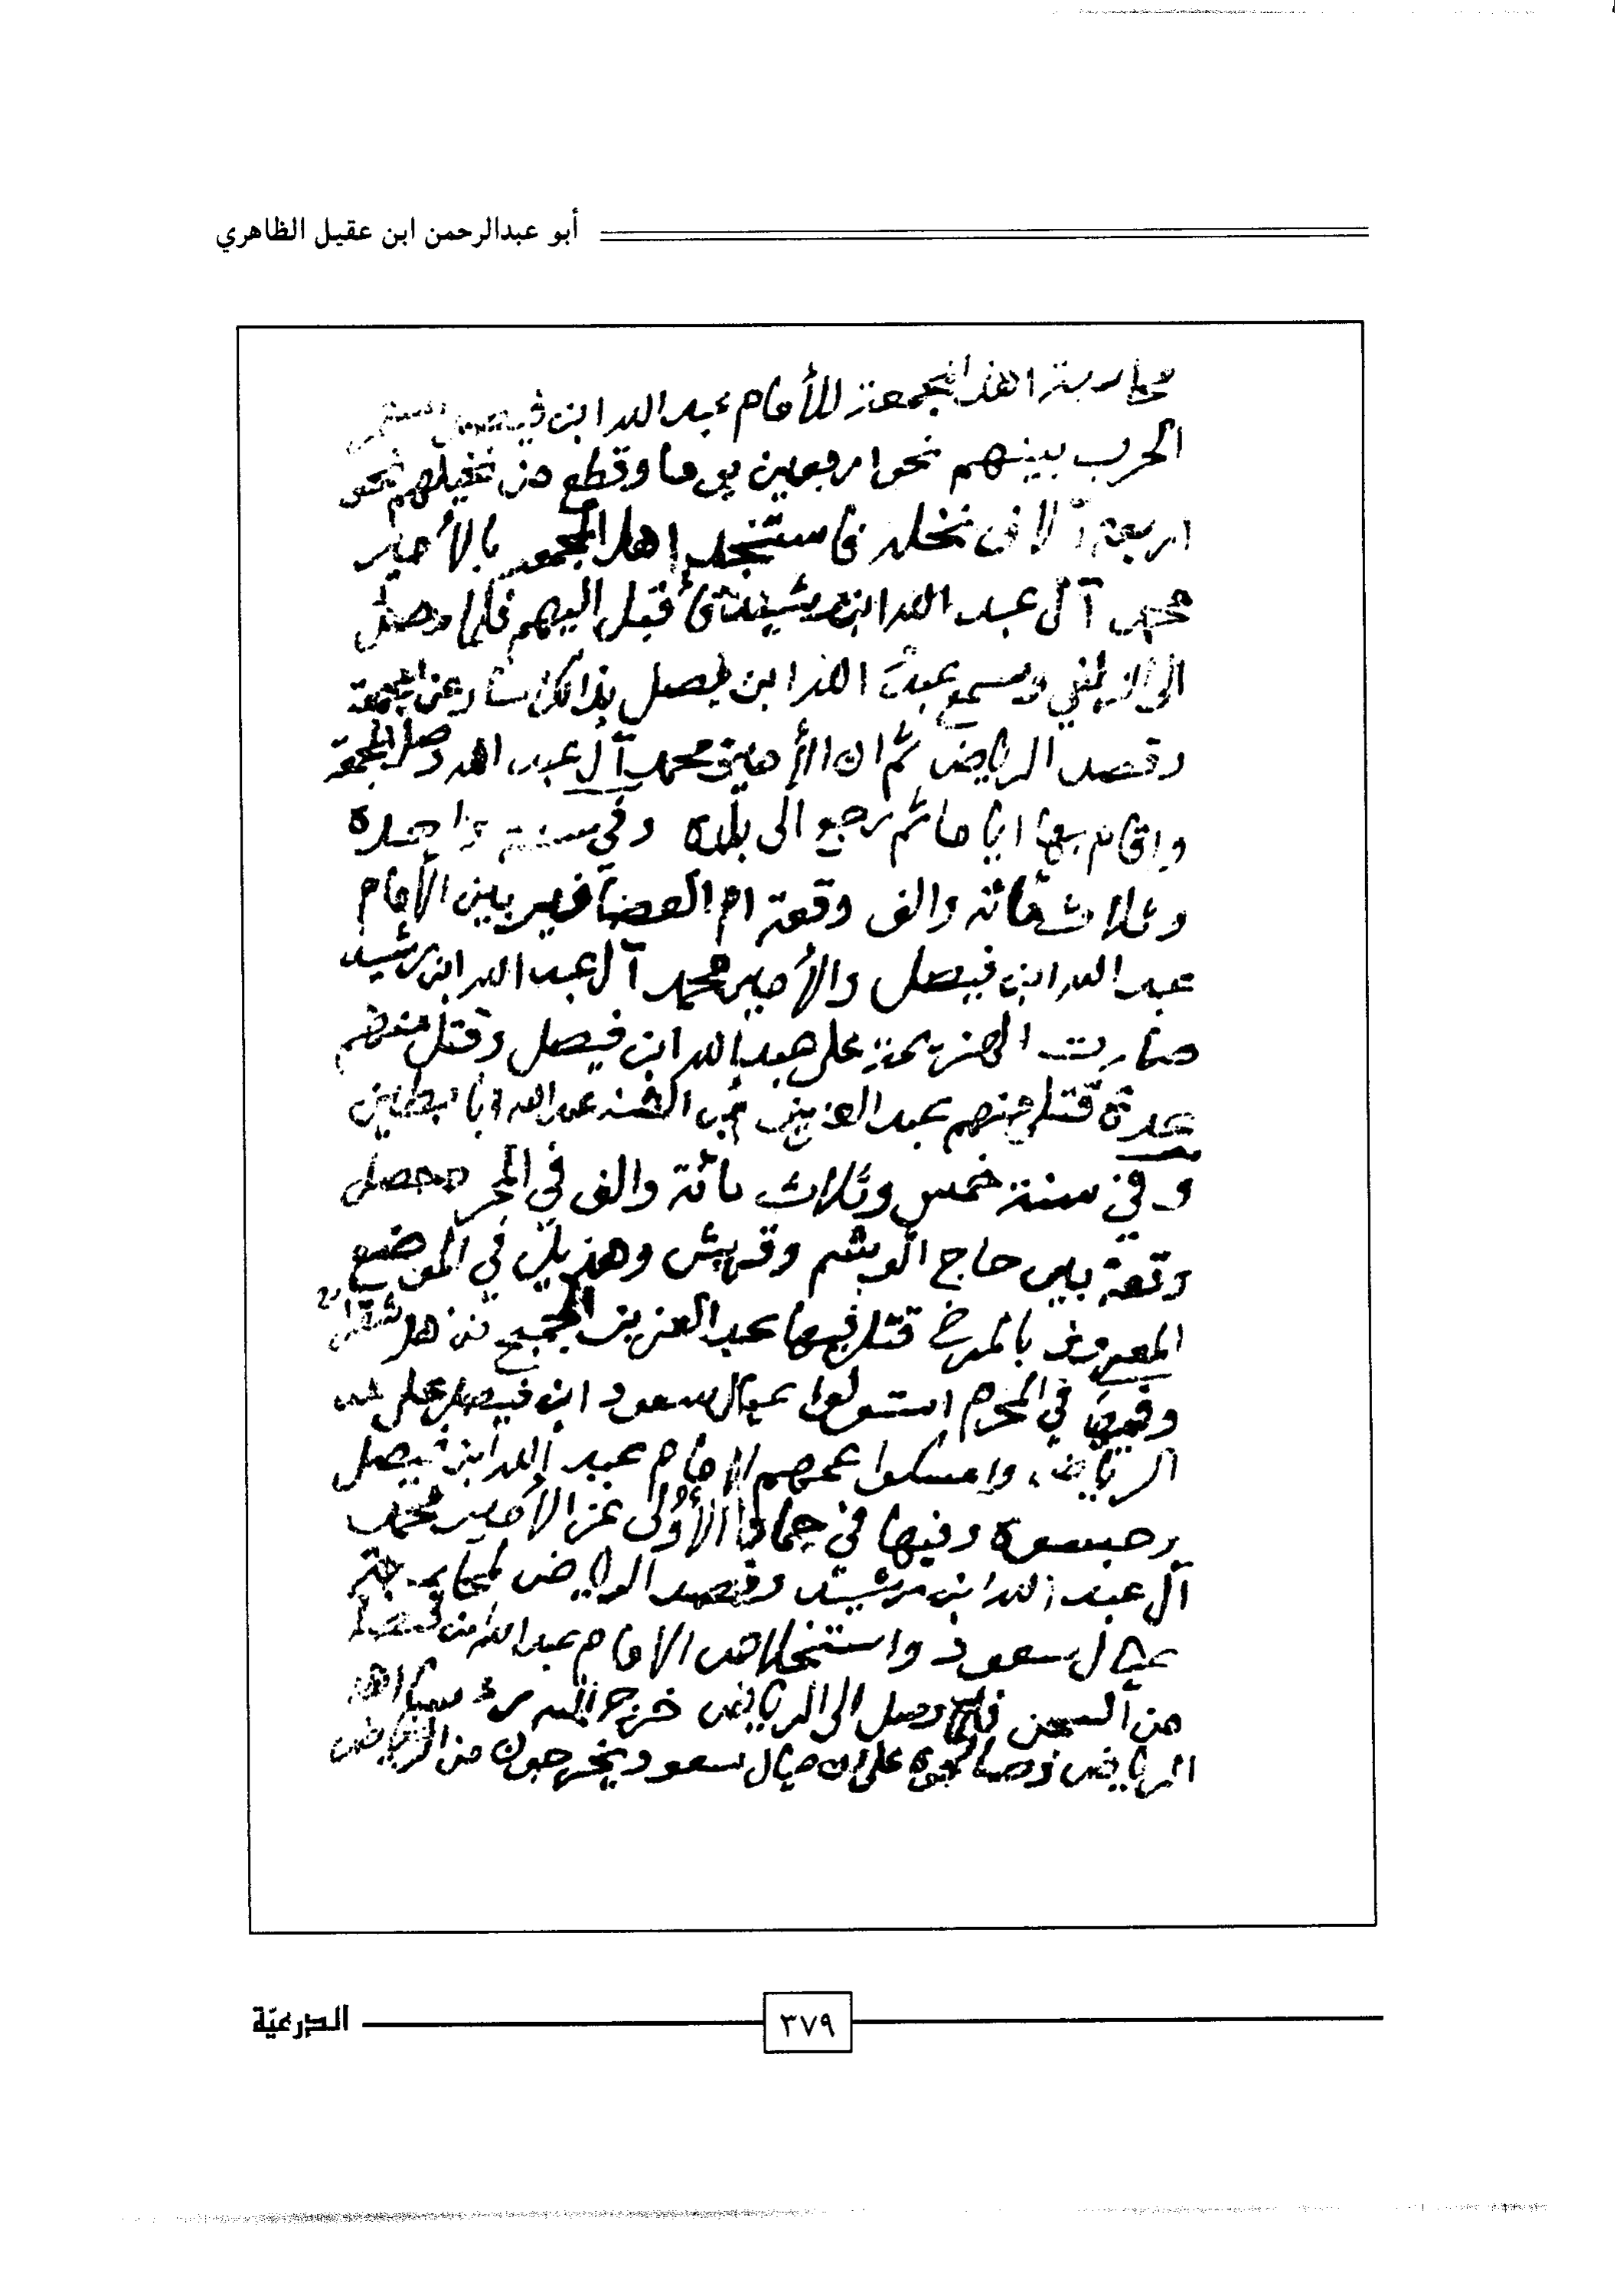 أبو عبدالرحمن ابن عقيل الظاهري
محاربة اهل المجمعة للأمام عبد الله ابن فيصل
الحرب بينهم نحو اربعين يوما وقطع من نخيلهم نحو
اربعة آلاف نخله فاستنجد اهل المجمعه بالأمير
محمد آل عبد الله ابن رشيد فأقبل اليهم فلما وصل
الى الزلفي وسمع عبد الله ابن فيصل بذالك عن المجمعة
وقصد الرياض ثم ان الأمير محمد آل عبد الله وصل المجمعة
واقام بها اياما ثم رجع الى بلده وفي سنة واحده
وثلاثمائة والف وقعة ام العصافير بين الأمام
عبد الله ابن فيصل والأمير محمد آل عبد الله ابن رشيد
صارت الهزيمة على عبد الله ابن فيصل وقتل منهم
عدة قتل منهم عبد العزيز عبد الله ابا بطين
وفي سنة خمس وثلاث مائة والف في المحرم حصل
وقعة بين حاج الوشم وقريش وهذيل في الموضع
المعروف بالمرخ قتل فيها عبد العزيز الجميح من اهل شقراء
وفيها في المحرم استولوا عيال سعود ابن فيصل على
الرياض وامسكوا عمهم الامام عبد الله ابن فيصل
وحبسوه وفيها في جمادا الأولى غزا الأمير محمد
آل عبد الله ابن رشيد وقصد الرياض لمحاربة
عيال سعود واستخلاص الامام عبد الله ابن فيصل
من السجن فلما وصل الى الرياض خرج اليه رؤساء اهل
الرياض وصالحوه على ان عيال سعود يخرجون من الرياض
٣٧٩
الدرعيّة